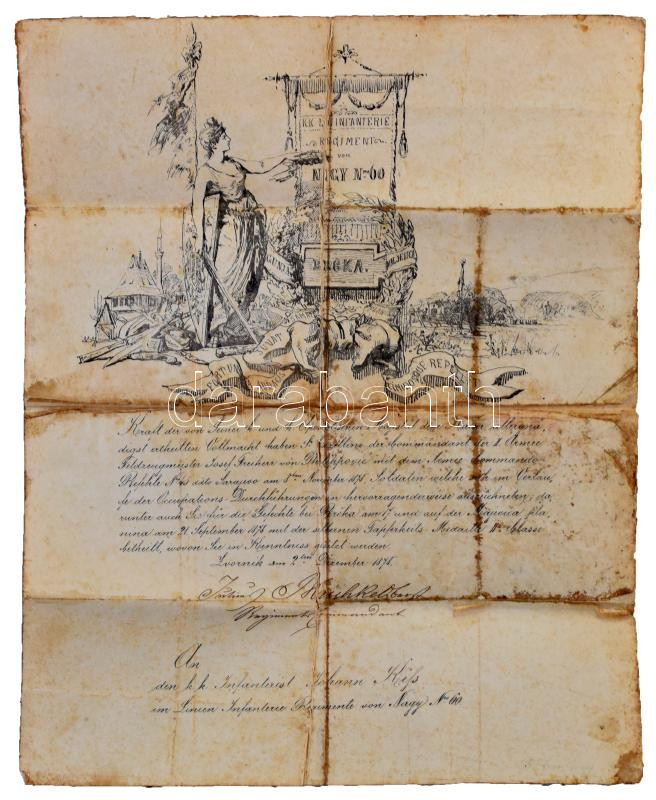 KK LIN INFANTERIE
REGIMENT
VON
NAGY No 60
BRČKA.
FORTUNA
darabanth
Kraft der von Seiner k. und k. Apostolischen Majestät
digst ertheilten Vollmacht haben Se. der Commandant der II Armee
Feldzeugmeister Josef Freiherr von Philippovic mit dem Armee Commando
Befehle No ddto Sarajevo am 5ten November 1878, Soldaten welche sich im Verlau-
fe der Occupations-Durchführung in hervorragenderweise auszeichneten, da-
runter auch Sie für die Gefechte bei Brčka am 17 und auf der Majevica Pla-
nina am 21 September 1878 mit der silbernen Tapferkeits Medaille Classe
betheilt, wovon Sie in Kenntniss gesetzt werden.
Zvornik am 2ten Dezember 1878.
Regiments Commandant
An
den k. k. Infanterist Johann Kiss
im Linien Infanterie Regimente von Nagy No 60